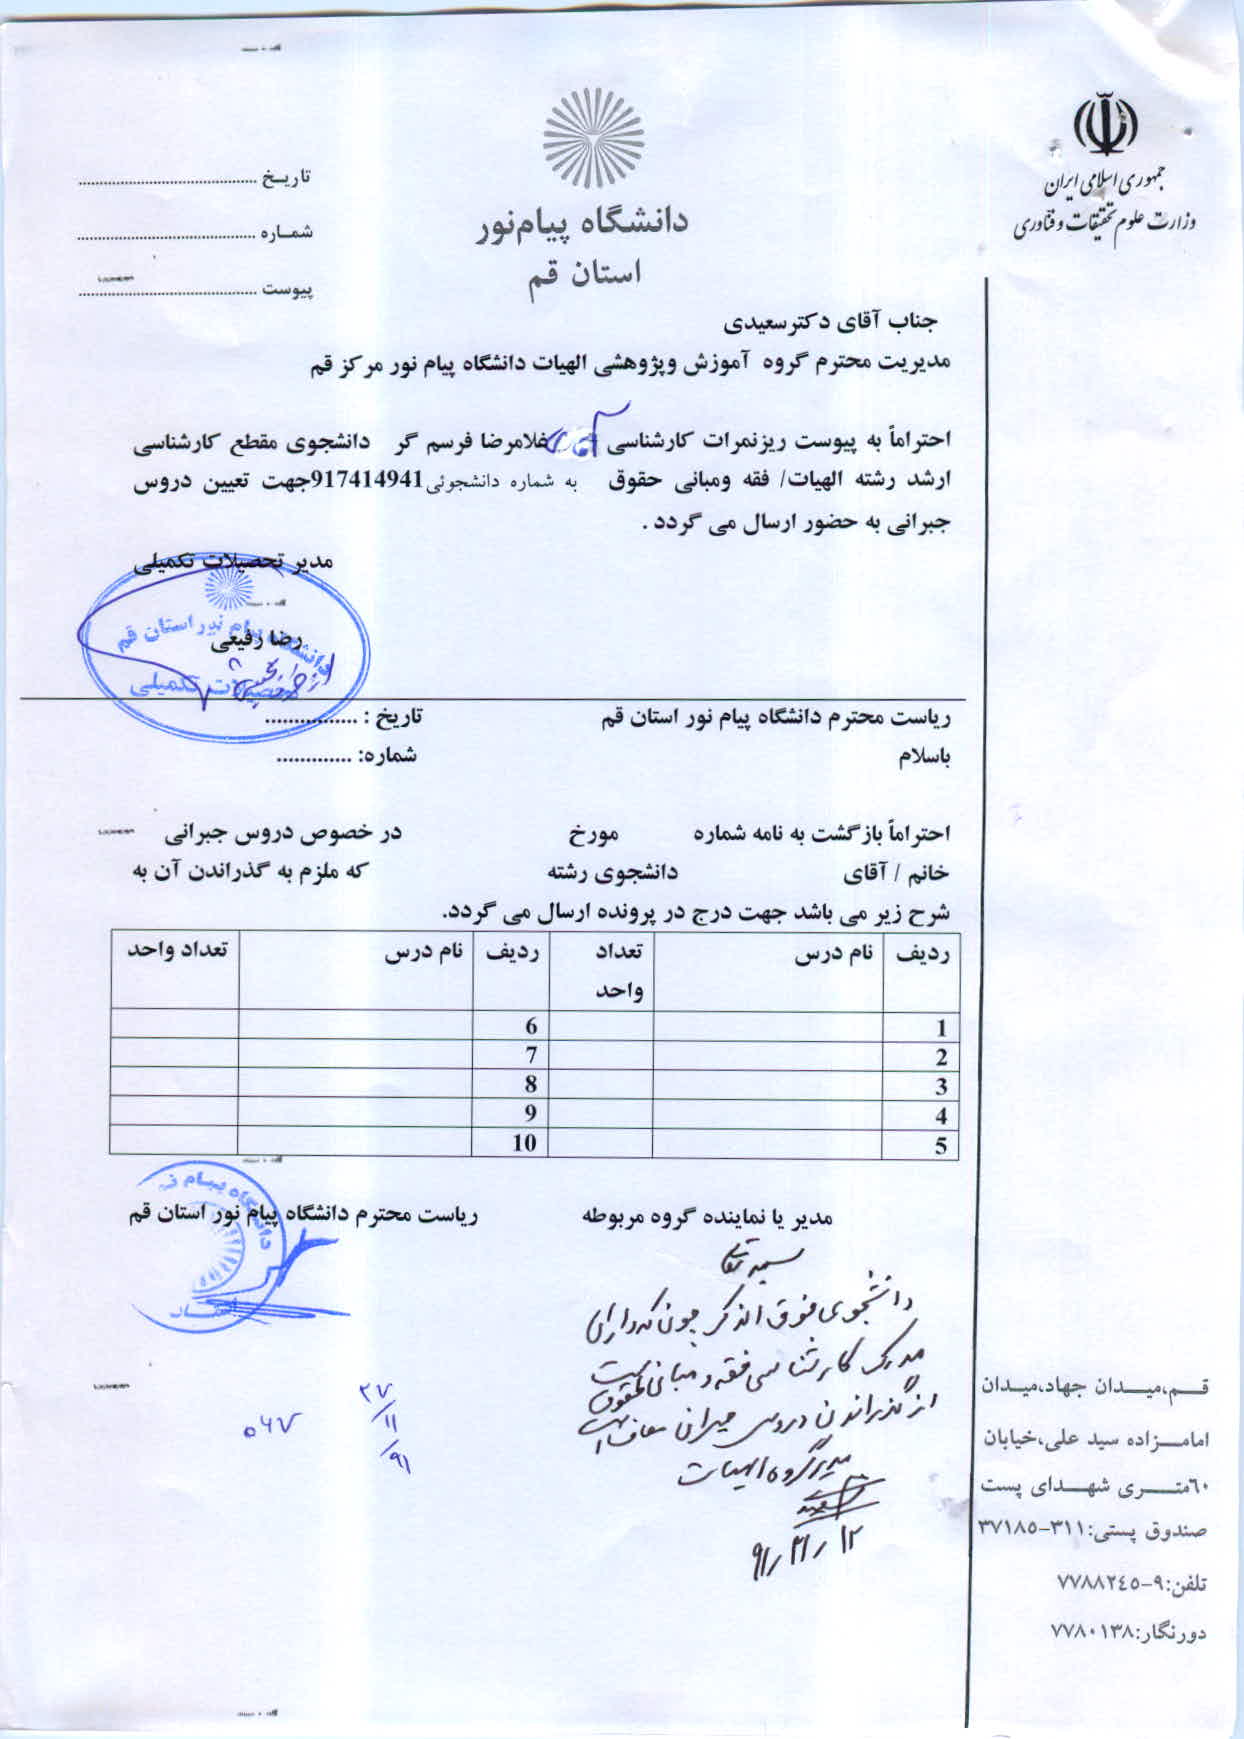 جمهوری اسلامی ایران
وزارت علوم تحقیقات و فناوری
دانشگاه پیام‌نور
استان قم
تاریـخ ..........................................
شمـاره ..........................................
پیوست ..........................................
جناب آقای دکترسعیدی
مدیریت محترم گروه آموزش وپژوهشی الهیات دانشگاه پیام نور مرکز قم
احتراماً به پیوست ریزنمرات کارشناسی آقای غلامرضا فرسم گر دانشجوی مقطع کارشناسی
ارشد رشته الهیات/ فقه ومبانی حقوق به شماره دانشجوئی917414941جهت تعیین دروس
جبرانی به حضور ارسال می گردد .
مدیر تحصیلات تکمیلی
رضا رفیعی
دانشگاه پیام نور استان قم
تحصیلات تکمیلی
ریاست محترم دانشگاه پیام نور استان قم تاریخ : ................
باسلام شماره: .............
احتراماً بازگشت به نامه شماره مورخ در خصوص دروس جبرانی
خانم / آقای دانشجوی رشته که ملزم به گذراندن آن به
شرح زیر می باشد جهت درج در پرونده ارسال می گردد.
ردیف نام درس تعداد واحد ردیف نام درس تعداد واحد
1 6
2 7
3 8
4 9
5 10
مدیر یا نماینده گروه مربوطه ریاست محترم دانشگاه پیام نور استان قم
دانشگاه پیام
دانشجوی فوق الذکر چون که دارای
مدرک کارشناسی فقه و مبانی حقوق است
از گذراندن دروس جبرانی معاف است
مدیر گروه الهیات
۹۱/۱۱/۲۷
۵۶۷
قــم،میــدان جهاد،میـدان
امامــزاده سید علی،خیابان
۶۰متــری شهــدای پست
صندوق پستی:۳۱۱-۳۷۱۸۵
تلفن:۹-۷۷۸۸۲٤۵
دورنگار:۷۷۸۰۱۳۸